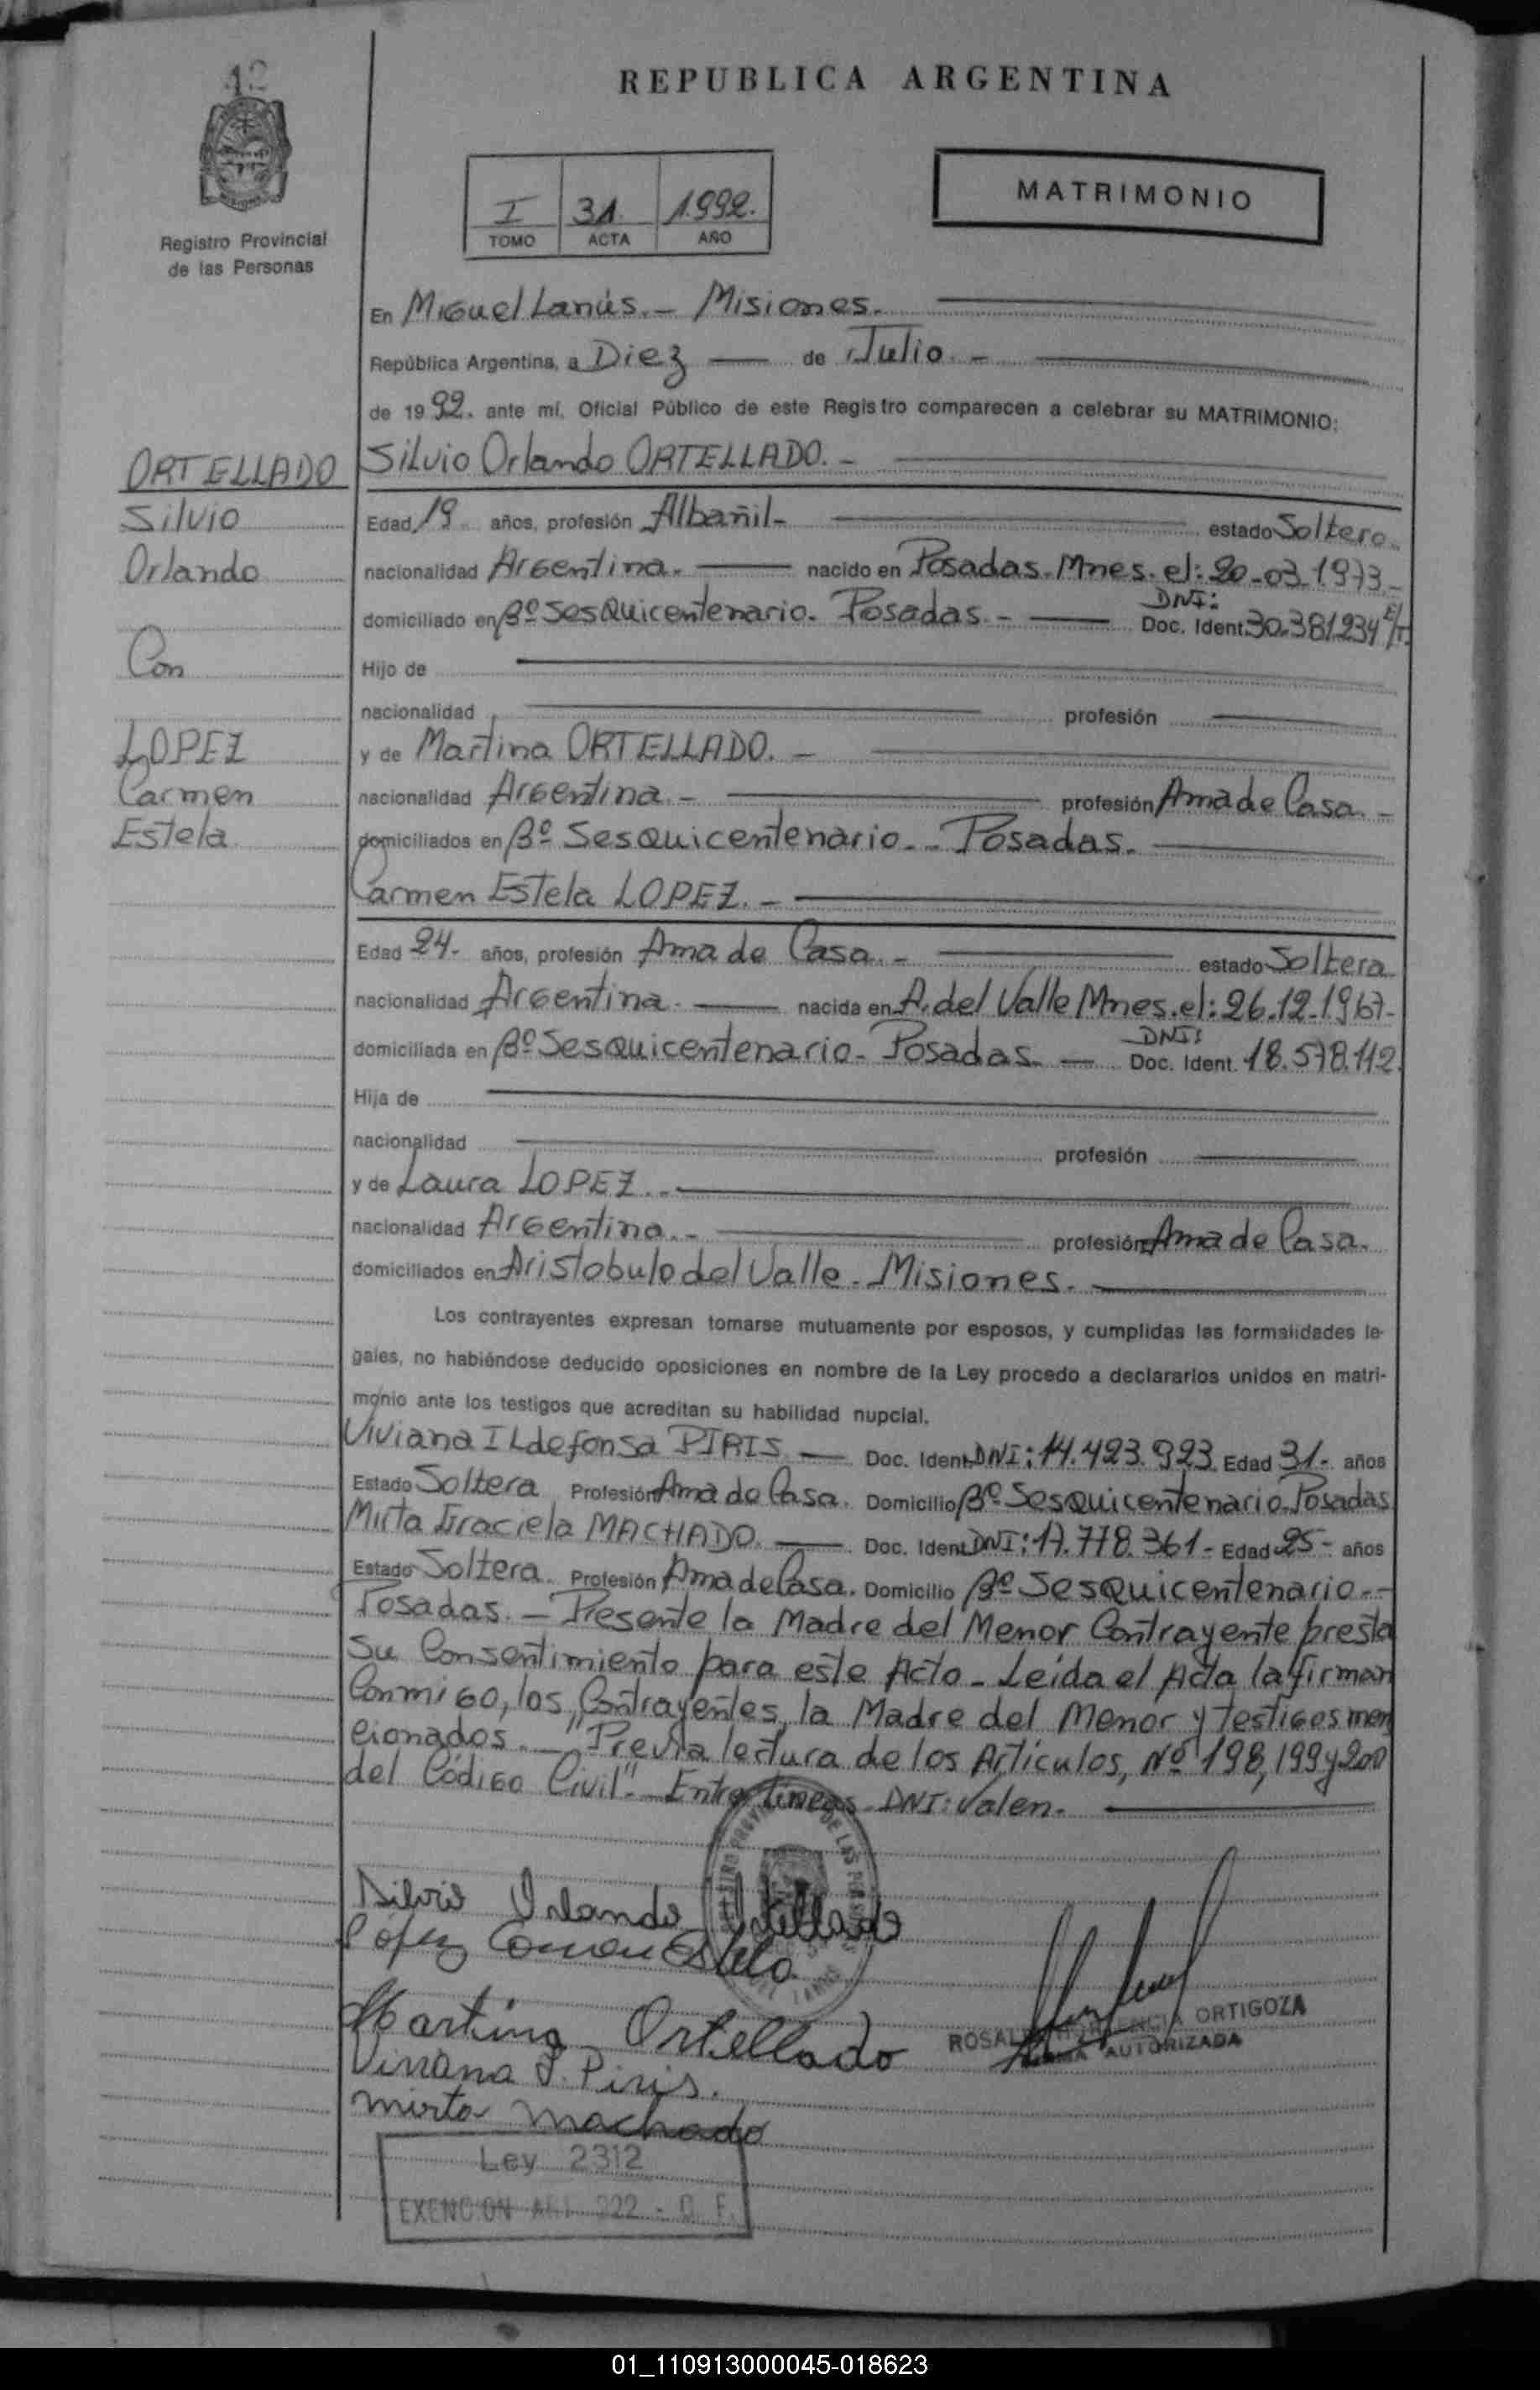 42
REPUBLICA ARGENTINA
Registro Provincial
de las Personas
I 31. 1.992.
TOMO ACTA AÑO
MATRIMONIO
En Miguel Lanús.- Misiones.
República Argentina, a Diez de Julio.-
de 1992. ante mí, Oficial Público de este Registro comparecen a celebrar su MATRIMONIO:
ORTELLADO
Silvio
Orlando
Con
LOPEZ
Carmen
Estela
Silvio Orlando ORTELLADO.-
Edad 19 años, profesión Albañil- estado Soltero.
nacionalidad Argentina.- nacido en Posadas-Mnes. el: 20-03-1973-
domiciliado en Bº Sesquicentenario. Posadas.- DNI: Doc. Ident. 30.381.234 E/T.
Hijo de
nacionalidad profesión
y de Martina ORTELLADO.-
nacionalidad Argentina.- profesión Ama de Casa.-
domiciliados en Bº Sesquicentenario.- Posadas.
Carmen Estela LOPEZ.-
Edad 24- años, profesión Ama de Casa.- estado Soltera
nacionalidad Argentina. nacida en A. del Valle Mnes. el: 26.12.1967-
domiciliada en Bº Sesquicentenario- Posadas.- DNI: Doc. Ident. 18.578.112.
Hija de
nacionalidad profesión
y de Laura LOPEZ.-
nacionalidad Argentina.- profesión Ama de Casa.
domiciliados en Aristobulo del Valle. Misiones.
Los contrayentes expresan tomarse mutuamente por esposos, y cumplidas las formalidades le-
gales, no habiéndose deducido oposiciones en nombre de la Ley procedo a declararlos unidos en matri-
monio ante los testigos que acreditan su habilidad nupcial.
Viviana ILdefonsa PIRIS Doc. Ident. DNI: 14.423.923 Edad 31- años
Estado Soltera Profesión Ama de Casa. Domicilio Bº Sesquicentenario-Posadas
Mirta Graciela MACHADO. Doc. Ident. DNI: 17.778.361- Edad 25- años
Estado Soltera. Profesión Ama de Casa. Domicilio Bº Sesquicentenario.-
Posadas.- Presente la Madre del Menor Contrayente presta
Su Consentimiento para este Acto- Leída el Acta la firman
Conmigo, los Contrayentes, la Madre del Menor y testigos men
cionados.- "Previa lectura de los Artículos, Nº 198, 199 y 200
del Código Civil".- Entre líneas- DNI: Valen.
Silvio Orlando Ortellado
López Carmen Estela
Martina Ortellado
Viviana I. Piris.
mirta machado
ORTIGOZA
AUTORIZADA
Ley 2312
EXENCION ART. 222 - C. F.
01_110913000045-018623